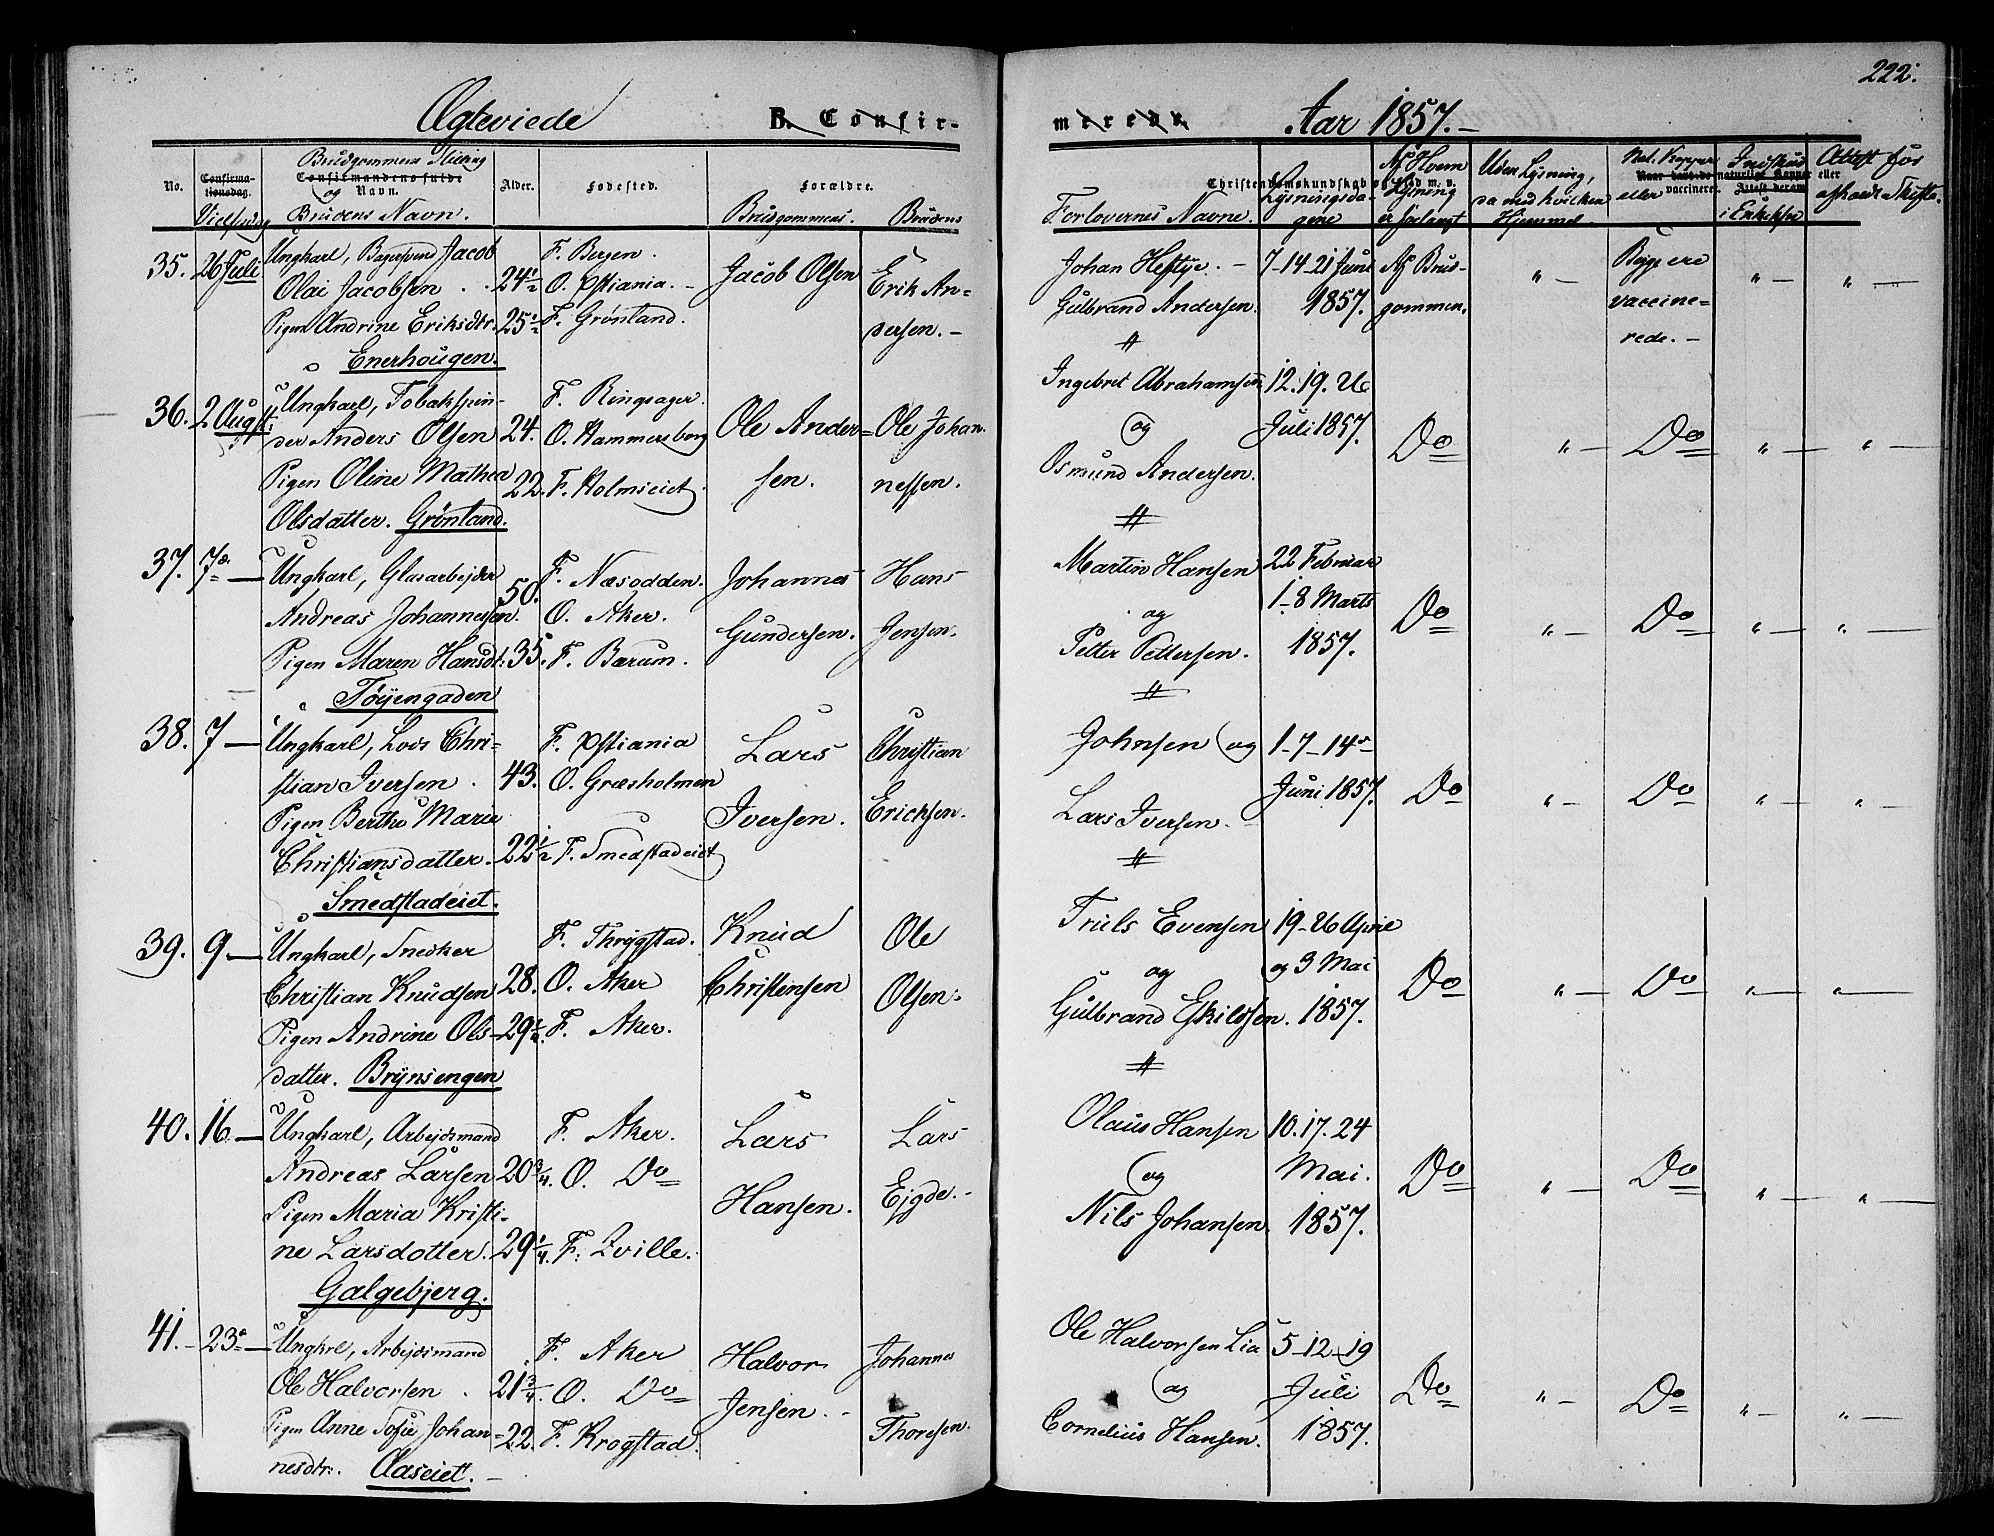 222.
Ægteviede B. Confir-
merede. Aar 1857.-
No. Confirma-tionsdag. Vielsesdag
Brudgommens Stilling
Confirmandens fulde
og Navn.
Brudens Navn.
Alder. Fødested. Forældre.
Brudgommens. Brudens
Christendomskundskab og Flid m. v.
Forlovernes Navne. Lysningsda-
gene
Af Hvem
Lysning
er forlangt
Uden Lysning,
da med hvilken
Hjemmel
Nat. Kopper
eller
Naar havde naturlige Kopper eller
vaccineret. Attest derom
Indskud
i Enkekasse
Attest for
afholdt Skifte.
35. 26 Juli Ungkarl, Bagersvend Jacob
Olai Jacobsen . . 24½
Pigen Andrine Eriksdtr. 25½
Enerhougen.
F. Bergen.
O. Xstiania.-
F. Grønland.
Jacob Olsen
Erik An-
dersen.-
Johan Heftye. -
Gulbrand Andersen.
7-14-21 Juni
1857.
Af Brud-
gommen.
" -
Begge ere
vaccine-
rede.-
" - " -
36. 2 Augst. Ungkarl, Tobakspin-
der Anders Olsen 24.
Pigen Oline Mathea 22.
Olsdatter. Grønland.
F. Ringsager.
O. Hammersborg
F. Holmseiet
Ole Ander-
sen.
Ole Johan-
nessen.
Ingebret Abrahamsen
og
Osmund Andersen.
12.19.26
Juli 1857.
Do " - Do " - " -
37. 7de - Ungkarl, Glasarbejder
Andreas Johannessen. 50.
Pigen Maren Hansdt. 35.
Tøyengaden
F. Næsodden.
O. Aker.
F. Bærum.
Johannes
Gundersen.
Hans
Jensen.
Martin Hansen
og
Petter Pettersen.
22 Februar
1-8 Marts
1857.
Do " - Do " - " -
38. 7 - Ungkarl, Lods Chri-
stian Iversen . 43.
Pigen Berthe Marie
Christiansdatter. 22½
Smedstadeiet.
F. Xstiania
O. Græsholmen
F. Smedstadeiet
Lars
Iversen.
Christian
Ericksen.
Johnsen og
Lars Iversen.
1-7-14de
Juni 1857.
Do " - Do " - " -
39. 9 - Ungkarl, Snedker
Christian Knudsen 28.
Pigen Andrine Ols- 29½
datter. Brynsengen
F. Thrygstad.
O. Aker
F. Aker.
Knud
Christensen
Ole
Olsen.
Truls Evensen
og
Gulbrand Eskildsen.
19-26 April
og 3 Mai
1857.
Do " - Do " - " -
40. 16 - Ungkarl, Arbejdsmand
Andreas Larsen 20¾
Pigen Maria Kristi-
ne Larsdotter. 29¼
Galgebjerg.
F. Aker.
O. Do
F. Zville.
Lars
Hansen.
Lars
Ejgde.-
Olaus Hansen
og
Nils Johansen.
10.17.24
Mai.
1857.
Do " - Do " - " -
41.- 23de - Ungkrl, Arbejdsmand
Ole Halvorsen . 21¾
Pigen Anne Sofie Johan- 22.
nesdtr. Aaseiet.-
F. Aker
O. Do
F. Krogstad.
Halvor
Jensen.-
Johannes
Thoresen.
Ole Halvorsen Lia
og
Cornelius Hansen.
5-12-19
Juli
1857.
Do " - Do " - " -